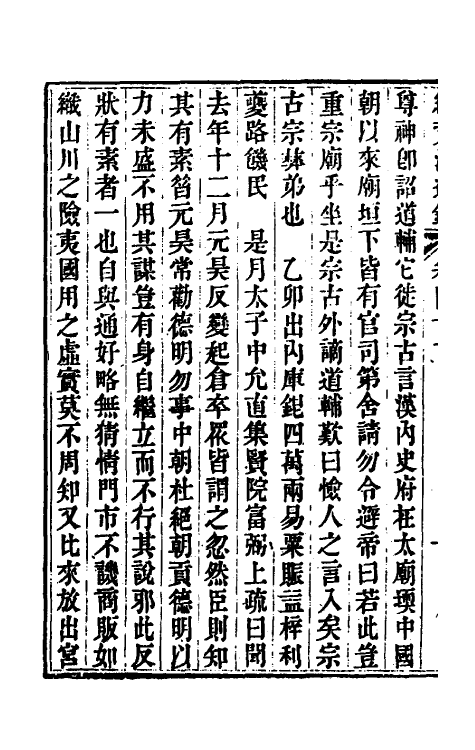 尊神卽詔道輔它徙宗古言漢內史府在太廟堧中國
朝以來廟垣下皆有官司第舍請勿令避帝曰若此豈
重宗廟乎坐是宗古外謫道輔歎曰憸人之言入矣宗
古宗彝弟也　乙卯出內庫銀四萬兩易粟賑益梓利
夔路饑民　是月太子中允直集賢院富弼上疏曰聞
去年十二月元昊反變起倉卒衆皆謂之忽然臣則知
其有素昔元昊常勸德明勿事中朝杜絕朝貢德明以
力未盛不用其謀豈有身自繼立而不行其說邪此反
狀有素者一也自與通好略無猜情門市不譏商販如
織山川之險夷國用之虛實莫不周知又比來放出宮